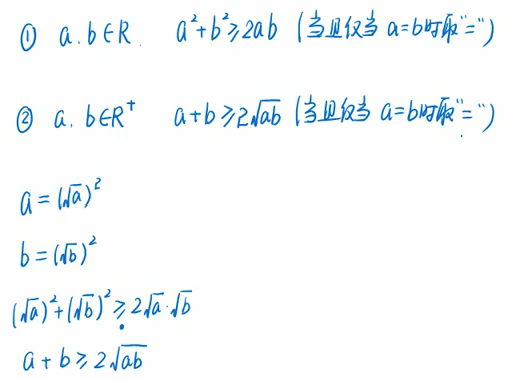 ① a.b∈R a²+b²≥2ab (当且仅当 a=b时取"=")
② a.b∈R⁺ a+b≥2√ab (当且仅当 a=b时取"=")
a=(√a)²
b=(√b)²
(√a)²+(√b)²≥2√a·√b
a+b≥2√ab